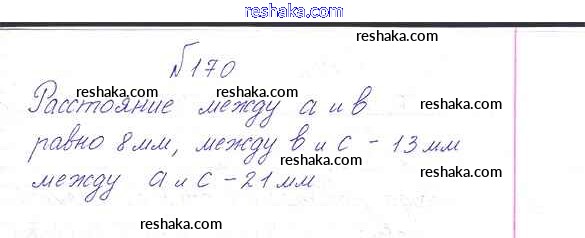 reshaka.com
reshaka.com
№170 reshaka.com
Расстояние между а и в
reshaka.com reshaka.com reshaka.com
равно 8 мм, между в и с - 13 мм
reshaka.com reshaka.com
между а и с - 21 мм
reshaka.com
reshaka.com